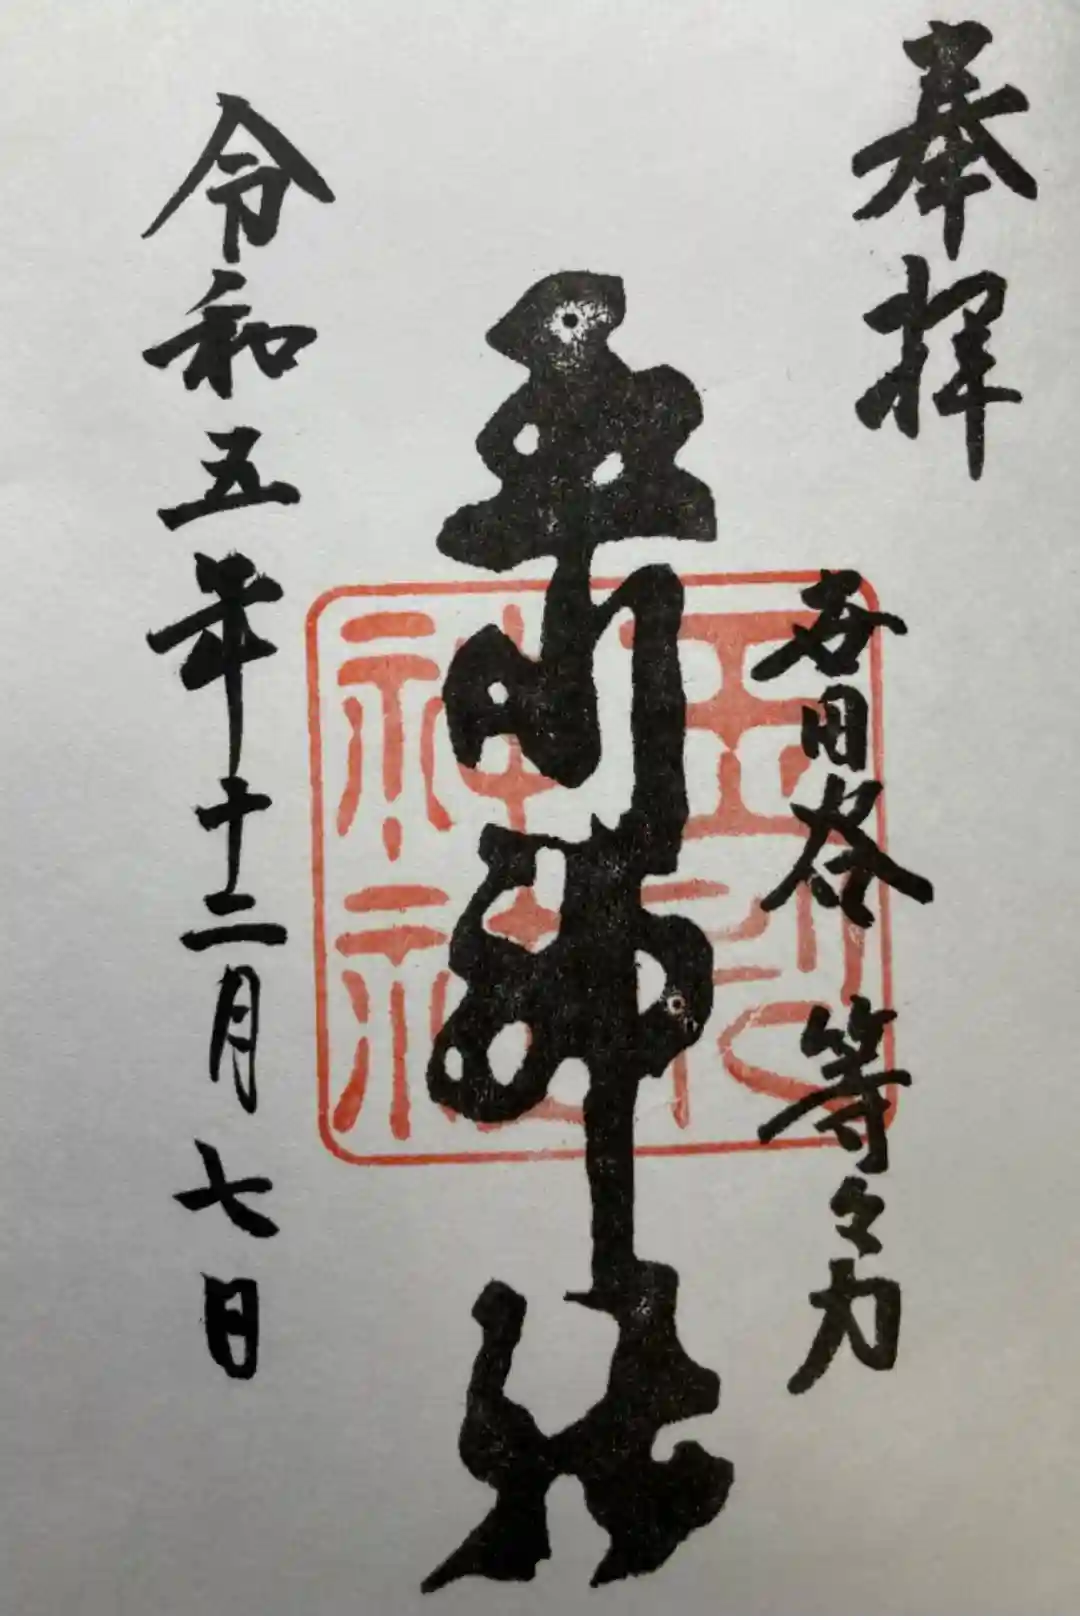 奉拝
世田谷 等々力
玉川神社
玉川
神社
令和五年十二月七日